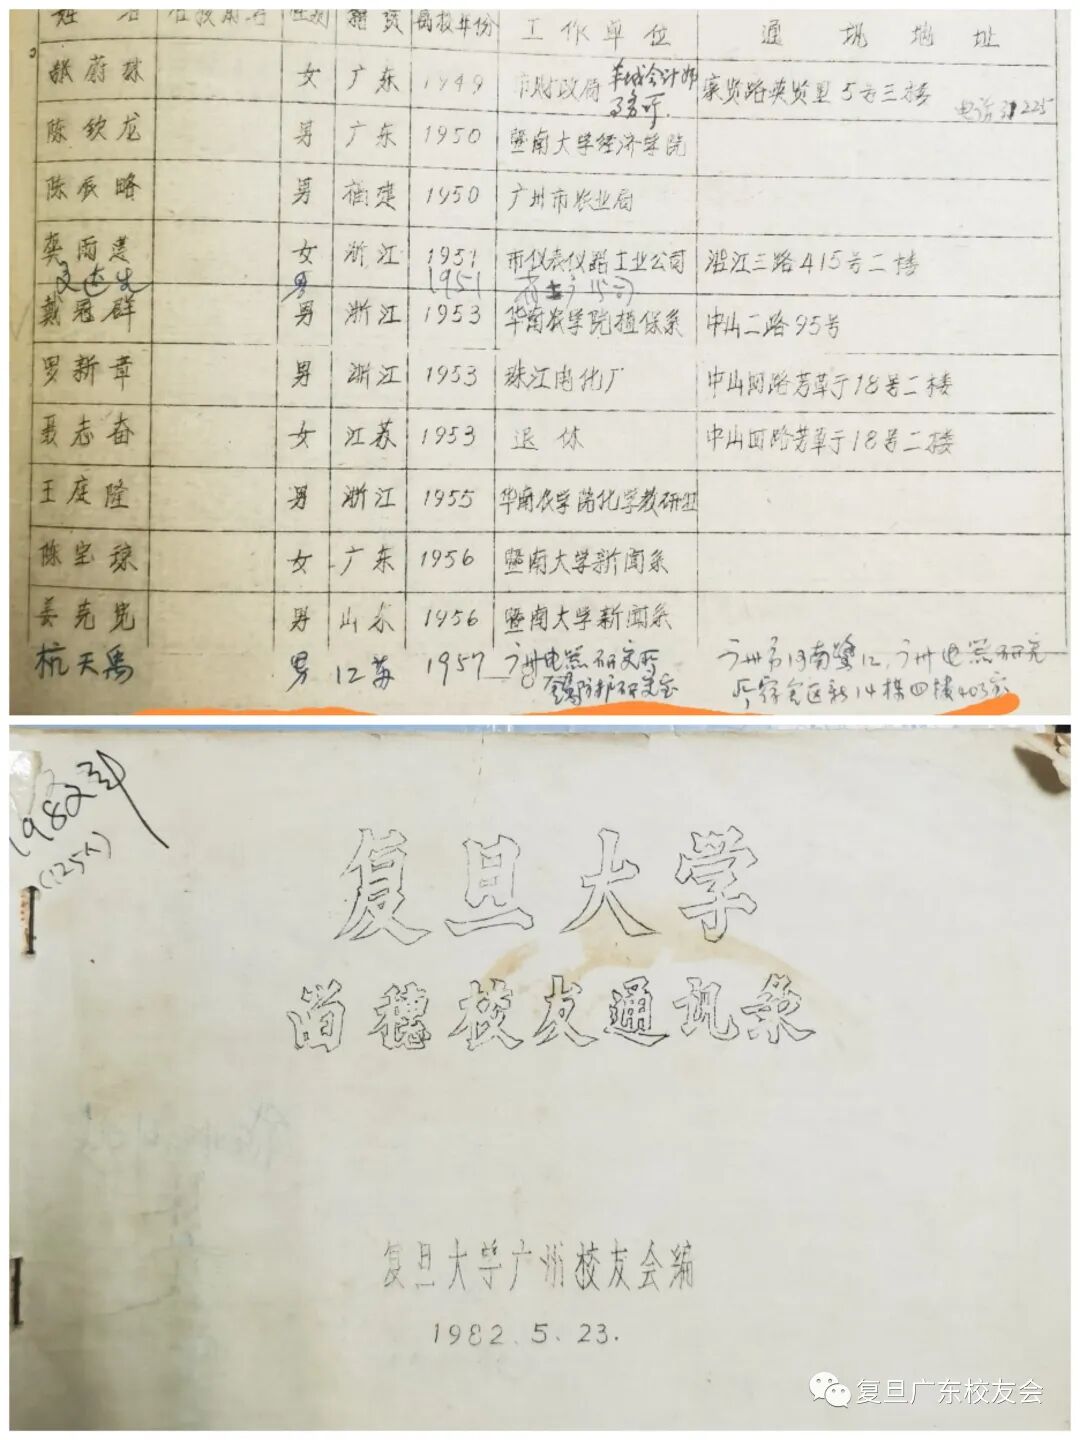 姓 名 在校前名 性别 籍贯 离校年份 工作单位 通讯地址
张蔚珠 女 广东 1949 市财政局 羊城会计师 豪贤路英贤里5号三楼
事务所 电话31225
陈钦龙 男 广东 1950 暨南大学经济学院
陈辰略 男 福建 1950 广州市农业局
龚雨 女 浙江 1951 市仪表仪器工业公司 滥江三路415号二楼
男 1951
戴冠群 男 浙江 1953 华南农学院植保系 中山二路95号
罗新章 男 浙江 1953 珠江电化厂 中山四路芳草街18号二楼
聂志奋 女 江苏 1953 退休 中山四路芳草街18号二楼
王庭隆 男 浙江 1955 华南农学院化学教研组
陈宝琼 女 广东 1956 暨南大学新闻系
姜克 男 山东 1956 暨南大学新闻系
杭天禹 男 江苏 1957 广州电器研究所 广州市河南鹭江广州电器研究
防护研究室 所宿舍区新14栋四楼403室
1982年
(125人)
复旦大学
留穗校友通讯录
复旦大学广州校友会编
1982.5.23.
复旦广东校友会